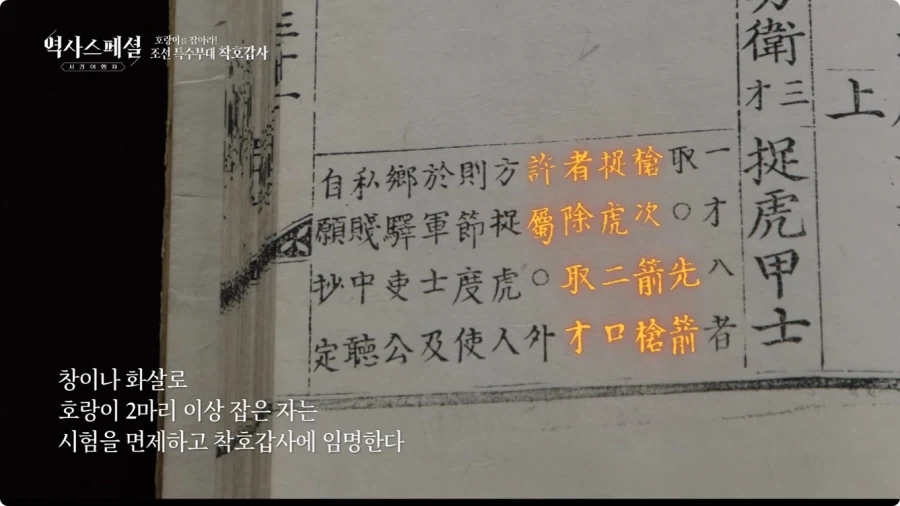 역사스페셜
시간여행자
호랑이를 잡아라!
조선 특수부대 착호갑사
上
衛
三才
捉虎甲士
一才八者
取○先箭
槍次箭槍
捉虎二口
者除取才
許屬○外
方捉虎人
則節度使
於軍士及
鄉驛吏公
私賤中聽
自願抄定
三十一
창이나 화살로
호랑이 2마리 이상 잡은 자는
시험을 면제하고 착호갑사에 임명한다